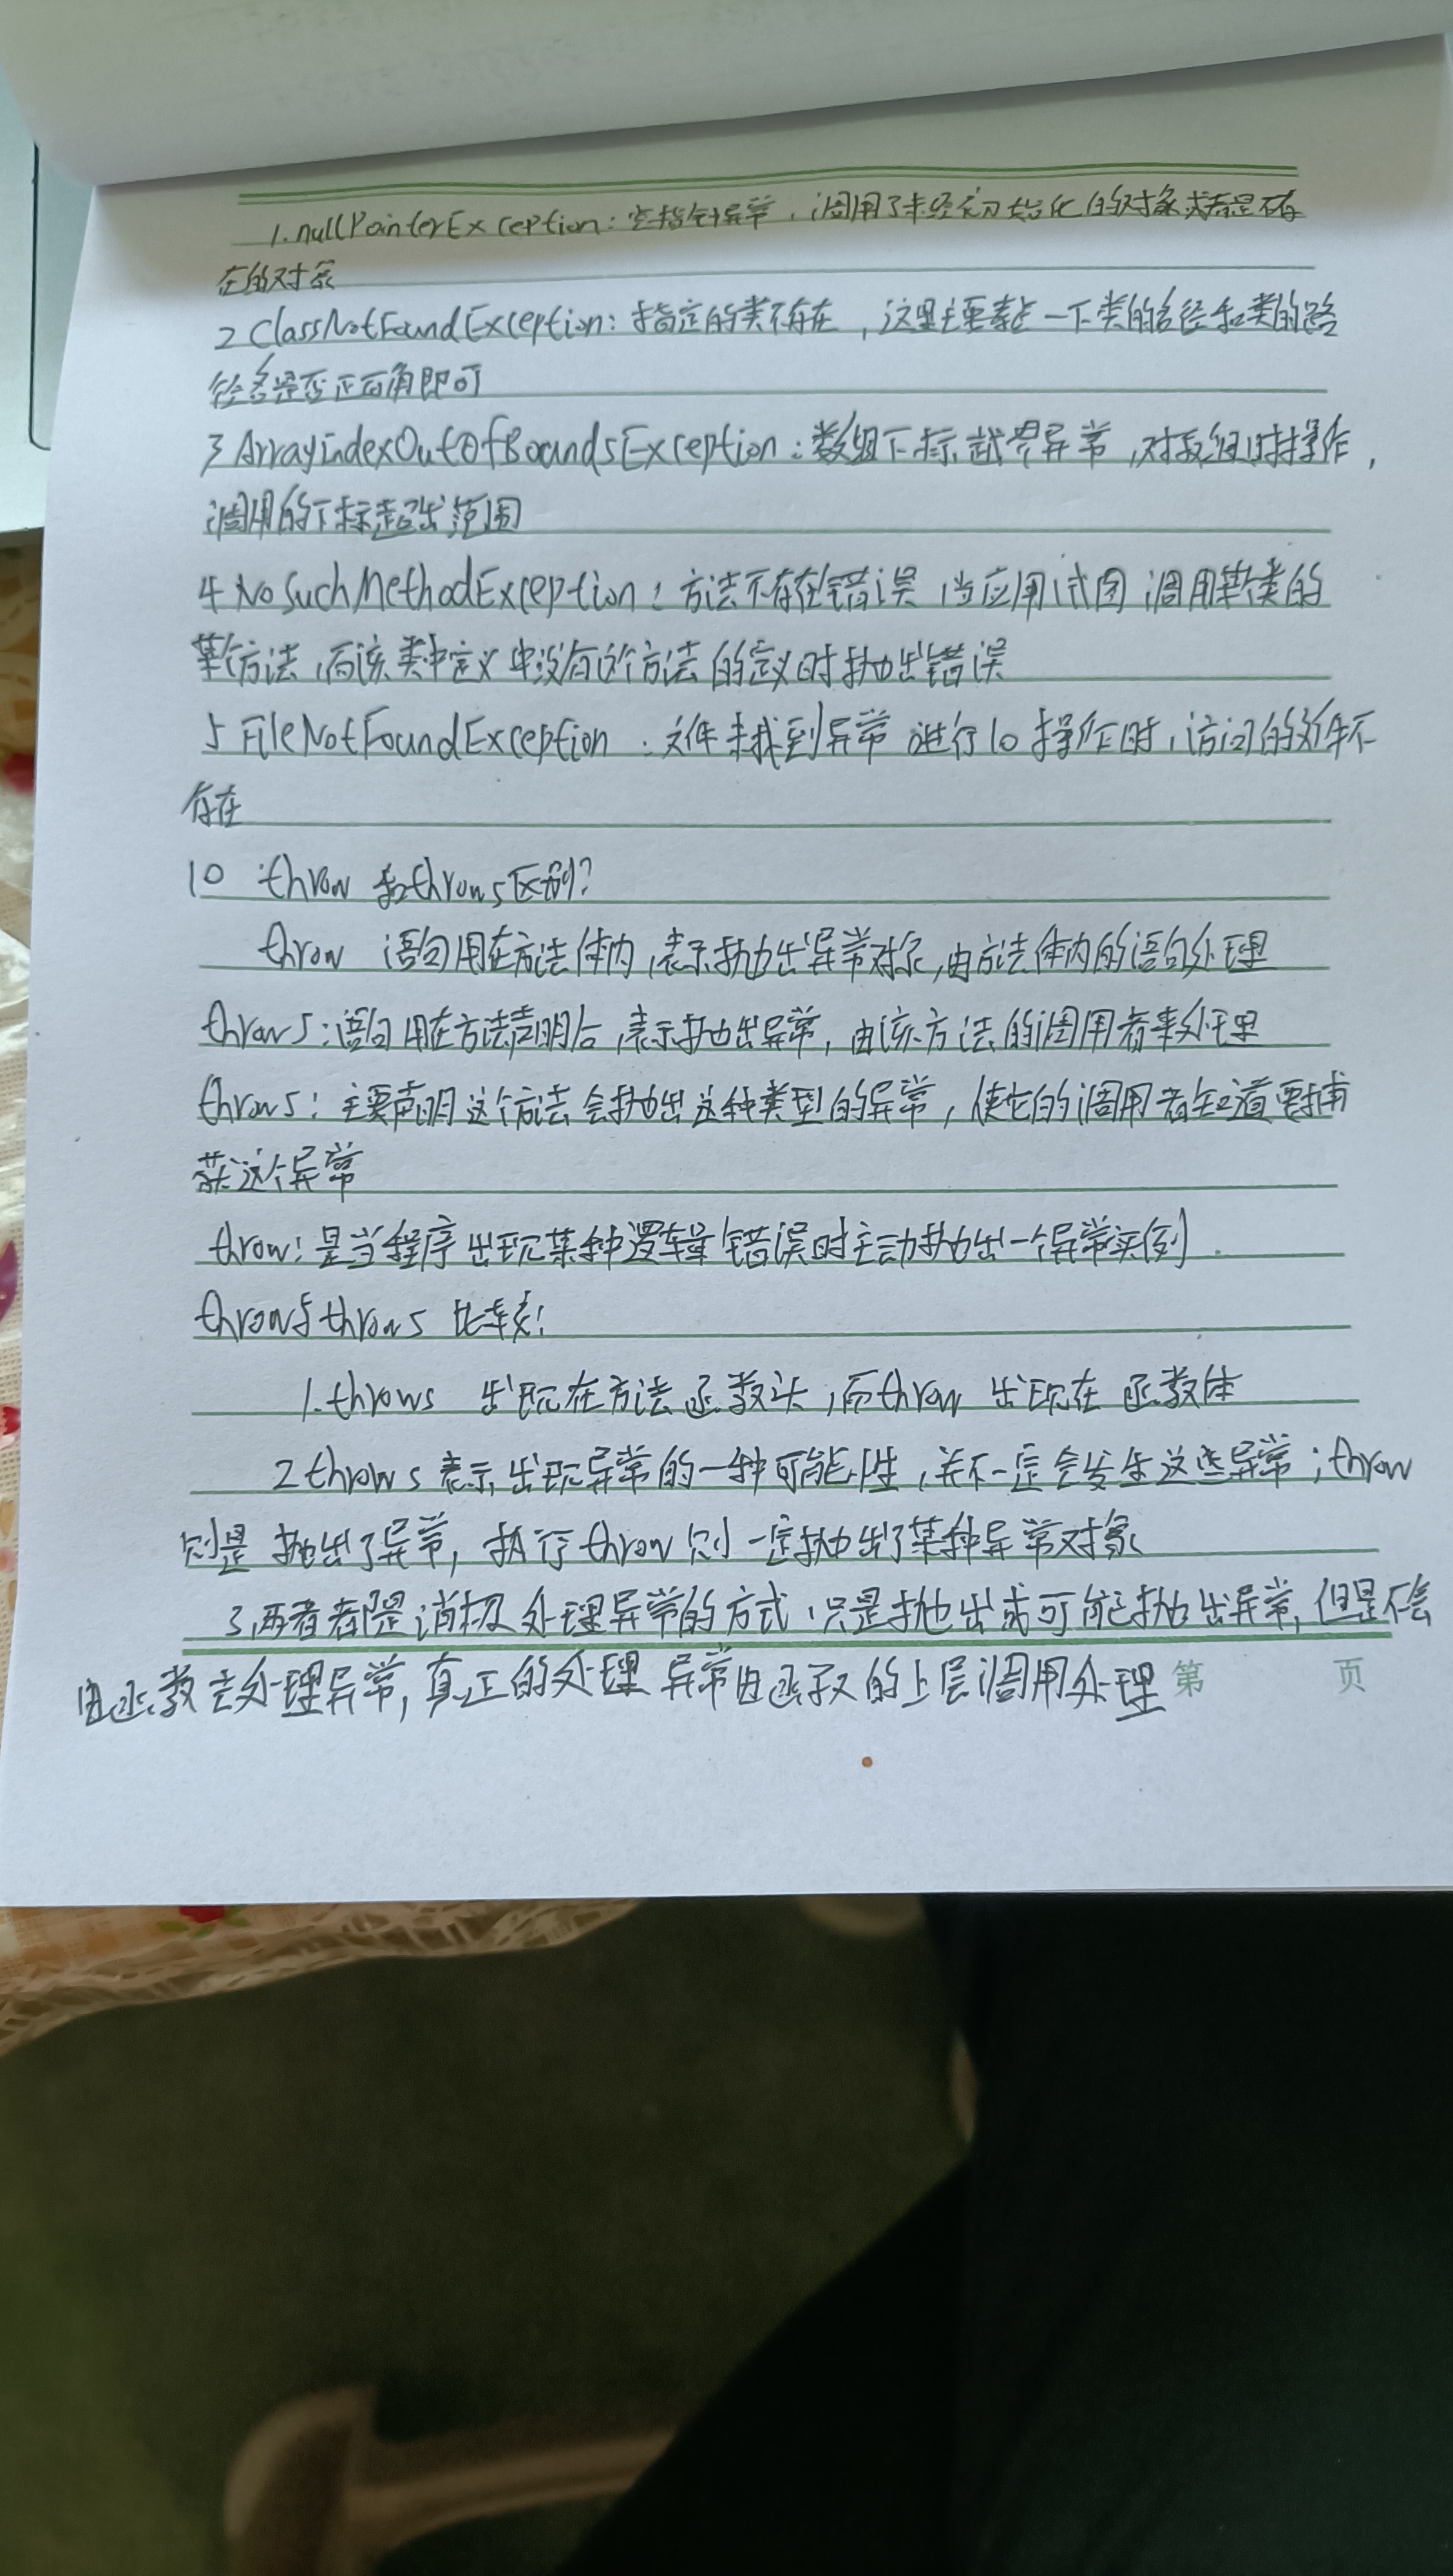 1.nullPointerException：空指针异常，调用了未经初始化的对象或者是不存
在的对象
2 ClassNotFoundException：指定的类不存在，这里主要考虑一下类的名径和类的路
径名是否正确即可
3 ArrayindexOutOfBoundsException：数组下标越界异常，对数组时操作，
调用的下标超出范围
4 NoSuchMethodException：方法不存在错误，当应用试图调用某类的
某个方法，而该类中定义中没有这个方法的定义时抛出错误
5 FileNotFoundException：文件未找到异常 进行IO操作时，访问的文件不
存在
10 throw 和throws区别？
throw 语句用在方法体内，表示抛出异常对象，由方法体内的语句处理
throws：语句用在方法声明后，表示抛出异常，由该方法的调用者来处理
throws：主要声明这个方法会抛出这种类型的异常，使它的调用者知道要捕
获这个异常
throw：是当程序出现某种逻辑错误时主动抛出一个异常实例．
throw与throws 比较：
1.throws 出现在方法函数头，而throw 出现在函数体
2 throws 表示出现异常的一种可能性，并不一定会发生这些异常；throw
则是抛出了异常，执行throw则一定抛出了某种异常对象
3.两者都是消极处理异常的方式，只是抛出或可能抛出异常，但是不会
由函数去处理异常，真正的处理异常由函数的上层调用处理
第 页